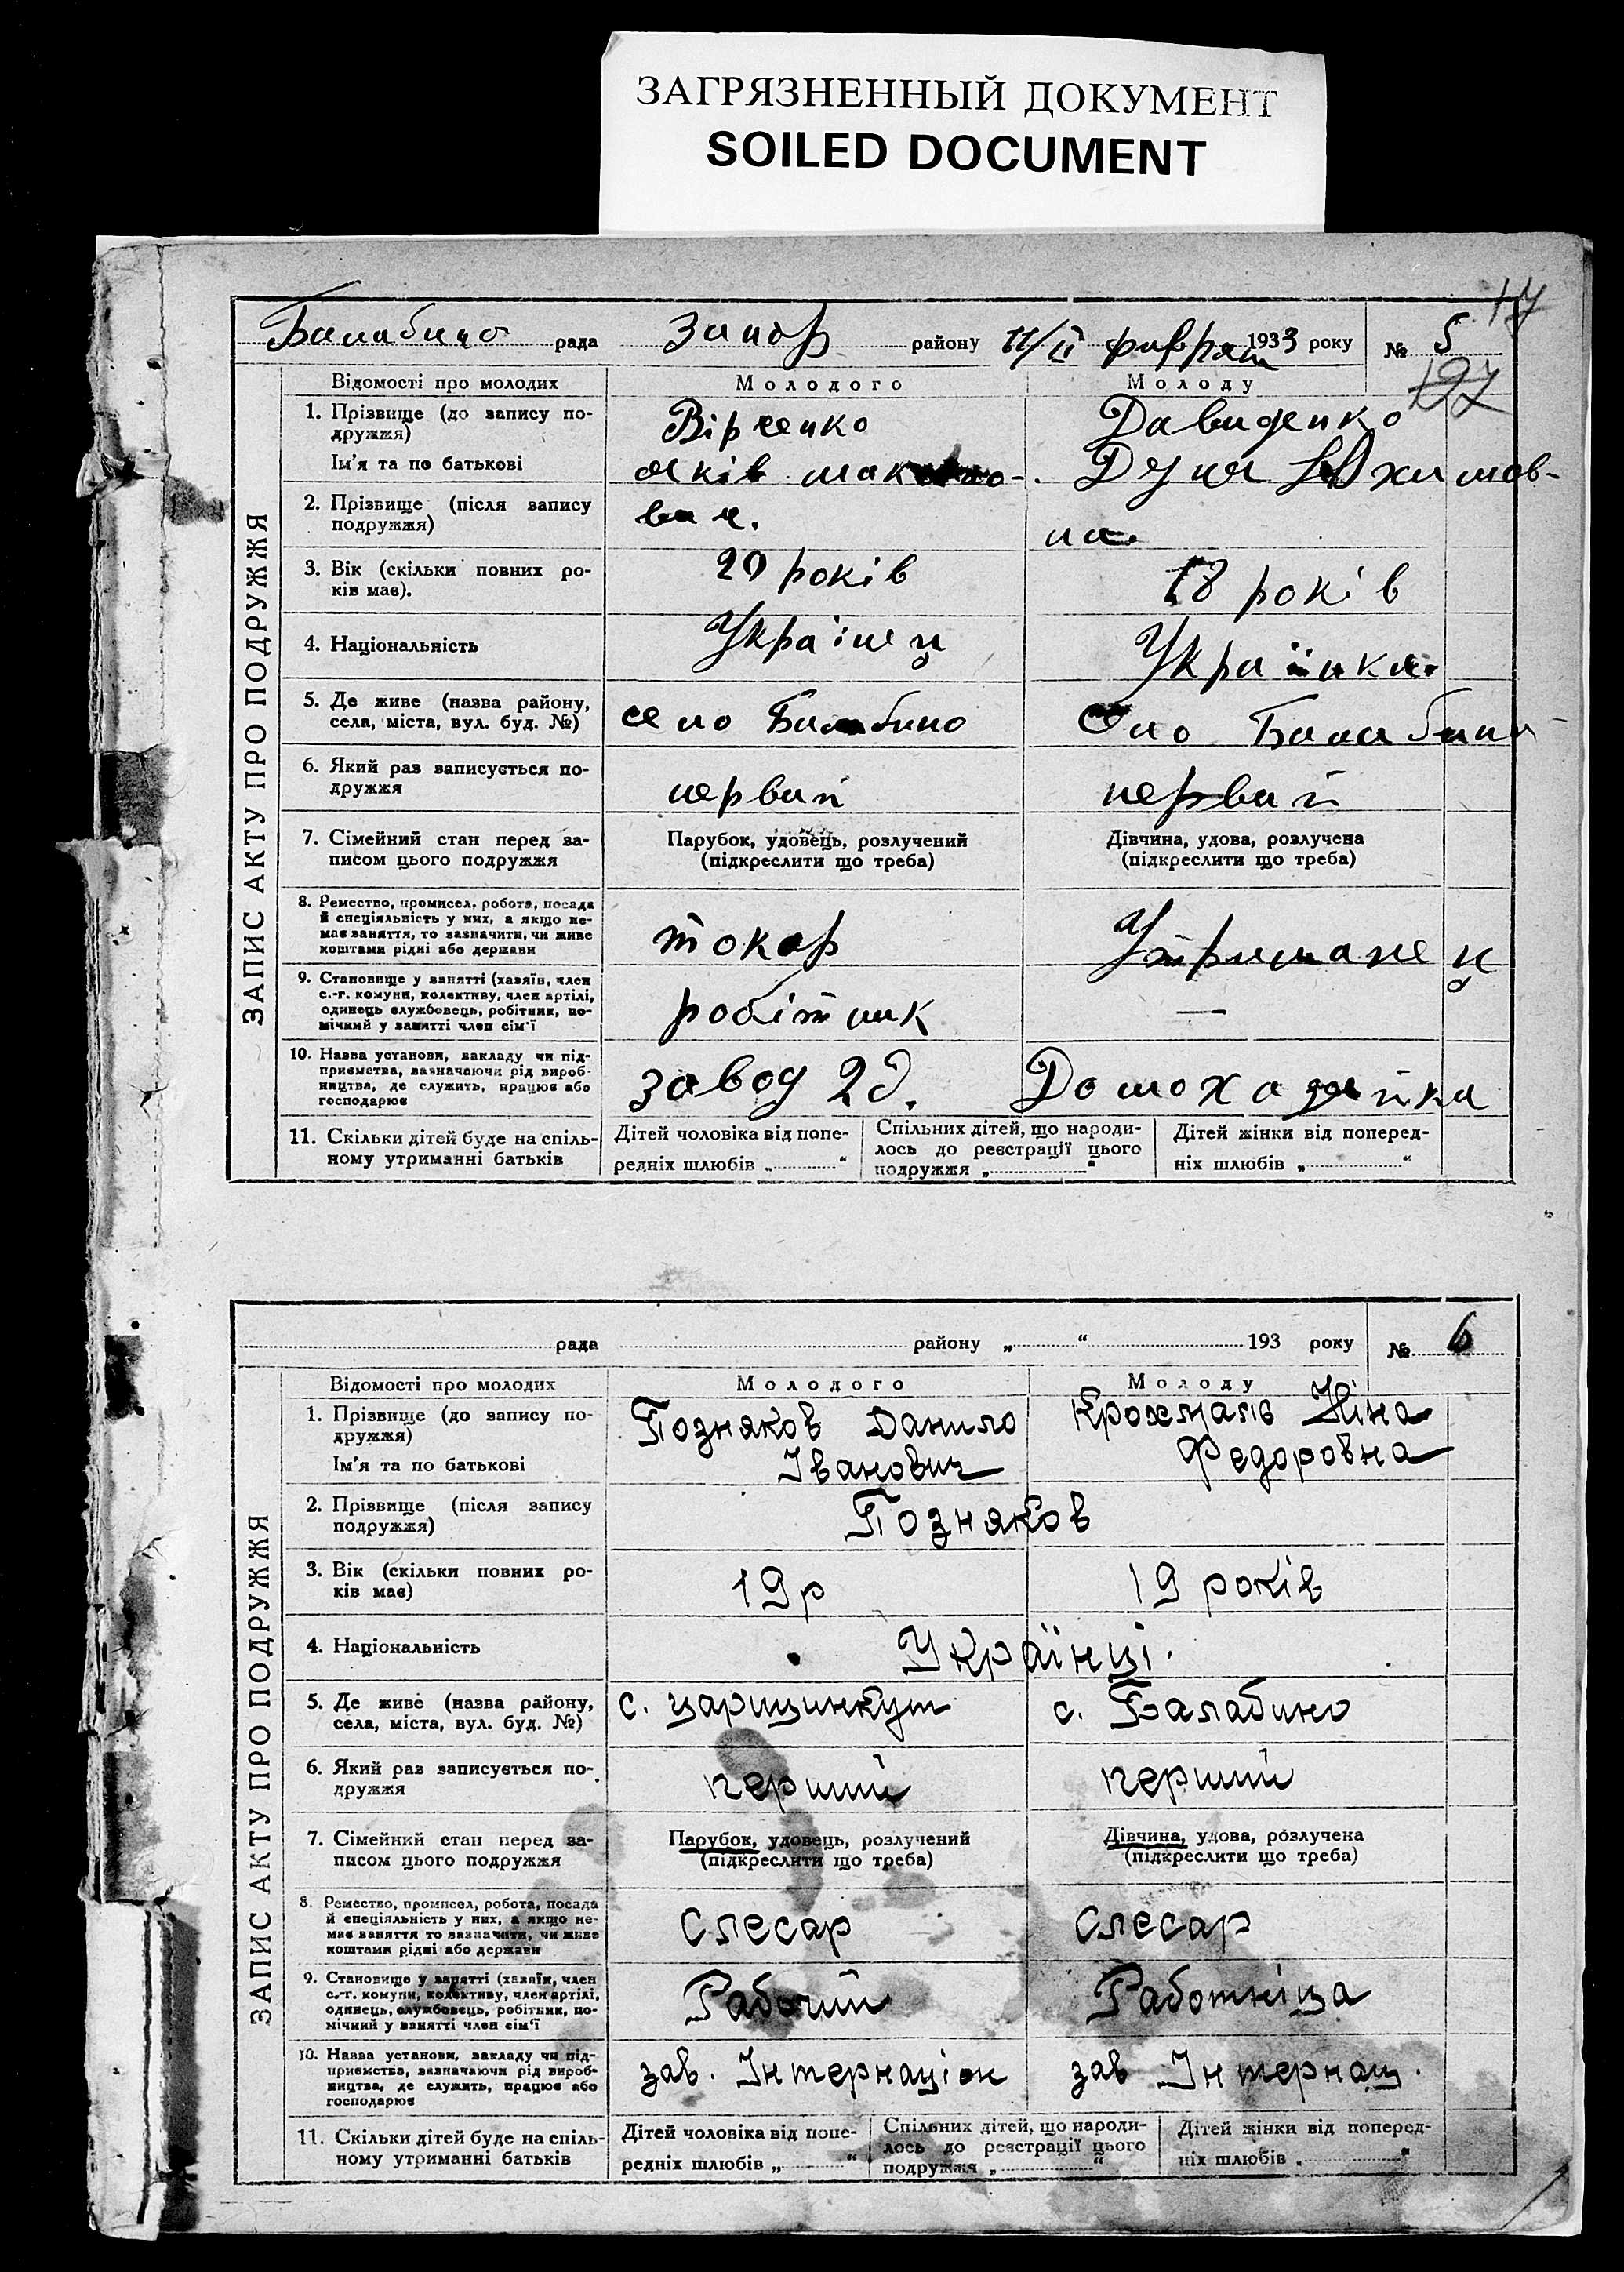 ЗАГРЯЗНЕННЫЙ ДОКУМЕНТ
SOILED DOCUMENT
17
Балабино рада Запор району 11/II февраля 1933 року № 5
127
ЗАПИС АКТУ ПРО ПОДРУЖЖЯ
Відомості про молодих Молодого Молоду
1. Прізвище (до запису по-
дружжя)
Ім'я та по батькові
Вірченко
Яків
Давиденко
Дуня Юхимов-
на
2. Прізвище (після запису
подружжя)
вич.
3. Вік (скільки повних ро-
ків має).
20 років 18 років
4. Національність Українец Українка
5. Де живе (назва району,
села, міста, вул. буд. №)
село Балабино Село Балабино
6. Який раз записується по-
дружжя
первий первий
7. Сімейний стан перед за-
писом цього подружжя
Парубок, удовець, розлучений
(підкреслити що треба)
Дівчина, удова, розлучена
(підкреслити що треба)
8. Ремество, промисел, робота, посада
й спеціяльність у них, а якщо не-
має заняття, то зазначити, чи живе
коштами рідні або держави
токар Утриманец
9. Становище у занятті (хазяїн, член
с.-г. комуни, колективу, член артілі,
одинець службовець, робітник, по-
мічний у занятті член сім'ї
робітник —
10. Назва установи, закладу чи під-
приємства, зазначаючи рід вироб-
ництва, де служить, працює або
господарює
завод 2д. Домохазяйка
11. Скільки дітей буде на спіль-
ному утриманні батьків
Дітей чоловіка від попе-
редніх шлюбів „ “
Спільних дітей, що народи-
лось до реєстрації цього
подружжя „ “
Дітей жінки від поперед-
ніх шлюбів „ “
рада району „ “ 193 року № 6
ЗАПИС АКТУ ПРО ПОДРУЖЖЯ
Відомості про молодих Молодого Молоду
1. Прізвище (до запису по-
дружжя)
Ім'я та по батькові
Позняков Данило
Іванович
Крохмалів Ніна
Федоровна
2. Прізвище (після запису
подружжя)
Позняков
3. Вік (скільки повних ро-
ків має)
19 р 19 років
4. Національність Українці.
5. Де живе (назва району,
села, міста, вул. буд. №)
с. царицинкут с. Балабино
6. Який раз записується по-
дружжя
перший перший
7. Сімейний стан перед за-
писом цього подружжя
Парубок, удовець, розлучений
(підкреслити що треба)
Дівчина, удова, розлучена
(підкреслити що треба)
8. Ремество, промисел, робота, посада
й спеціяльність у них, а якщо не-
має заняття то зазначити, чи живе
коштами рідні або держави
Слесар слесар
9. Становище у занятті (хазяїн, член
с.-г. комуни, колективу, член артілі,
одинець, службовець, робітник, по-
мічний у занятті член сім'ї
Рабочий Работніца
10. Назва установи, закладу чи під-
приємства, зазначаючи рід вироб-
ництва, де служить, працює або
господарює
зав. Інтернаціон зав Інтернац.
11. Скільки дітей буде на спіль-
ному утриманні батьків
Дітей чоловіка від попе-
редніх шлюбів „ “
Спільних дітей, що народи-
лось до реєстрації цього
подружжя „ “
Дітей жінки від поперед-
ніх шлюбів „ “